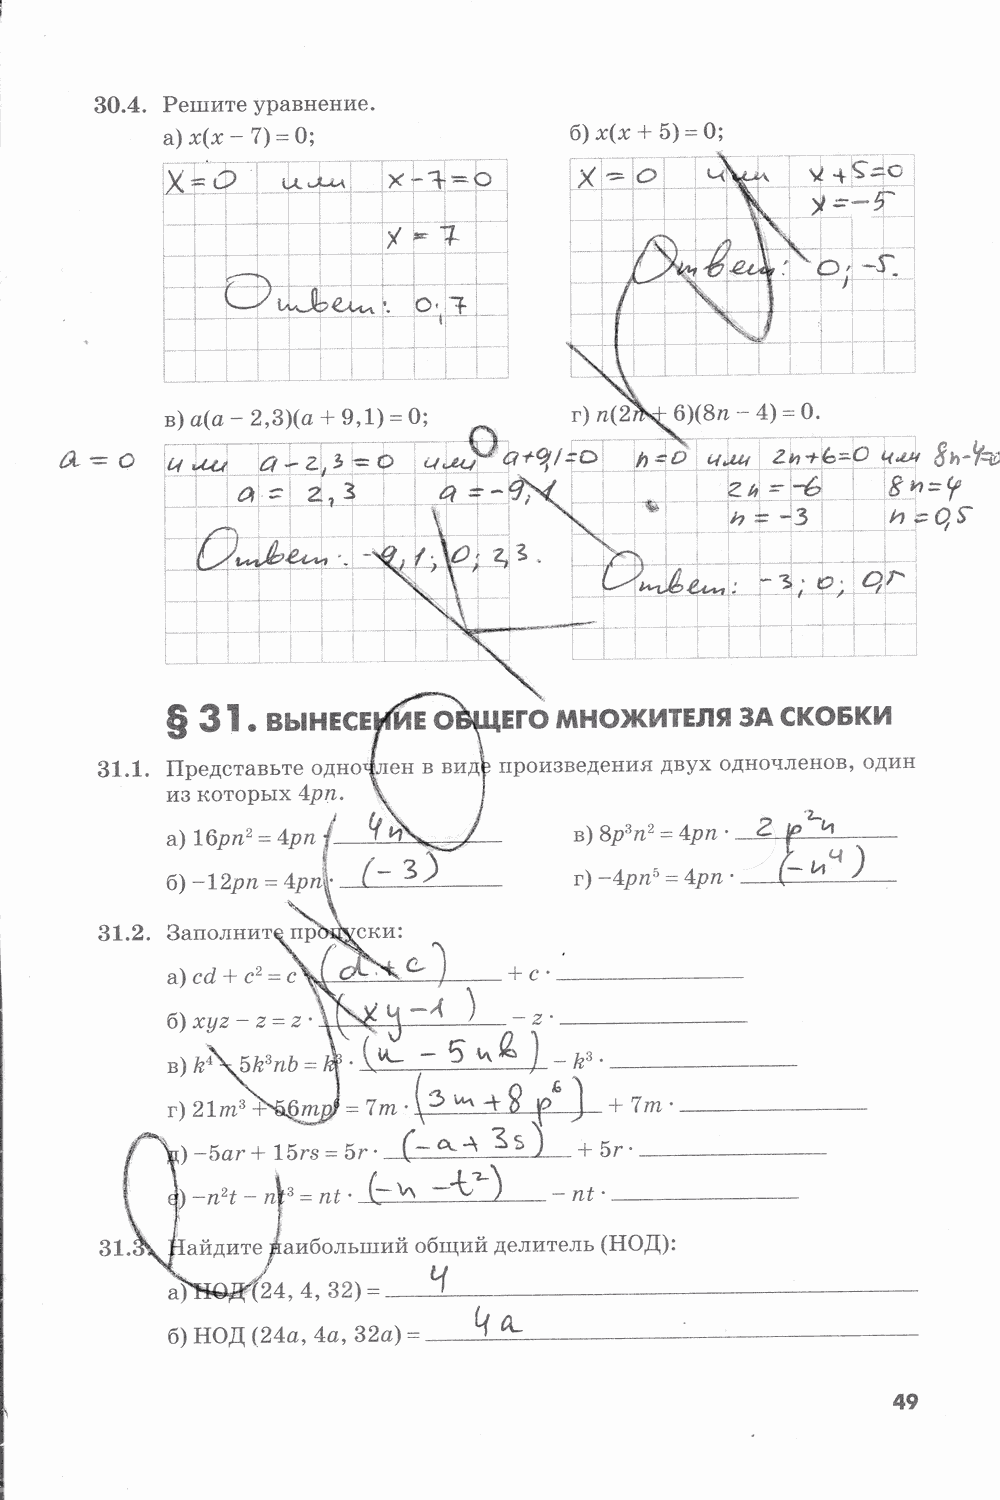 30.4. Решите уравнение.
а) x(x − 7) = 0;
x = 0 или x − 7 = 0
x = 7
Ответ: 0; 7
б) x(x + 5) = 0;
x = 0 или x + 5 = 0
x = −5
Ответ: 0; −5.
в) a(a − 2,3)(a + 9,1) = 0;
a = 0 или a − 2,3 = 0 или a + 9,1 = 0
a = 2,3 a = −9,1
Ответ: −9,1; 0; 2,3.
г) n(2n + 6)(8n − 4) = 0.
n = 0 или 2n + 6 = 0 или 8n − 4 = 0
2n = −6 8n = 4
n = −3 n = 0,5
Ответ: −3; 0; 0,5
§ 31. ВЫНЕСЕНИЕ ОБЩЕГО МНОЖИТЕЛЯ ЗА СКОБКИ
31.1. Представьте одночлен в виде произведения двух одночленов, один
из которых 4pn.
а) 16pn² = 4pn · 4n
б) −12pn = 4pn · (−3)
в) 8p³n² = 4pn · 2p²n
г) −4pn⁵ = 4pn · (−n⁴)
31.2. Заполните пропуски:
а) cd + c² = c · (d + c) + c ·
б) xyz − z = z · (xy − 1) − z ·
в) k⁴ − 5k³nb = k³ · (k − 5nb) − k³ ·
г) 21m³ + 56mp⁶ = 7m · (3m + 8p⁶) + 7m ·
д) −5ar + 15rs = 5r · (−a + 3s) + 5r ·
е) −n²t − nt³ = nt · (−n − t²) − nt ·
31.3. Найдите наибольший общий делитель (НОД):
а) НОД (24, 4, 32) = 4
б) НОД (24a, 4a, 32a) = 4a
49